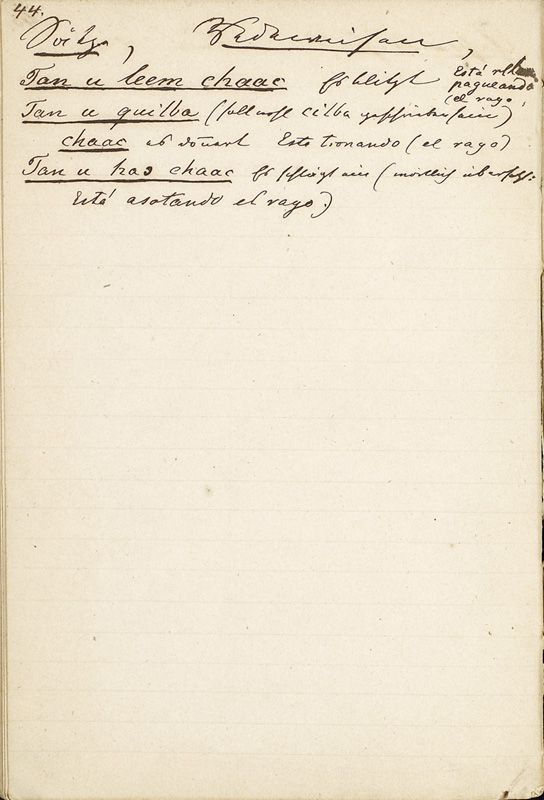 44.
Sätze, Redeweisen,
Tan u leem chaac es blitzt Está relampagueando
(el rayo)
Tan u quilba (soll wohl cilba geschrieben sein)
chaac es donnert Esta tronando (el rayo)
Tan u has chaac Es schlägt ein (wörtlich übersetzt:
Está asotando el rayo)